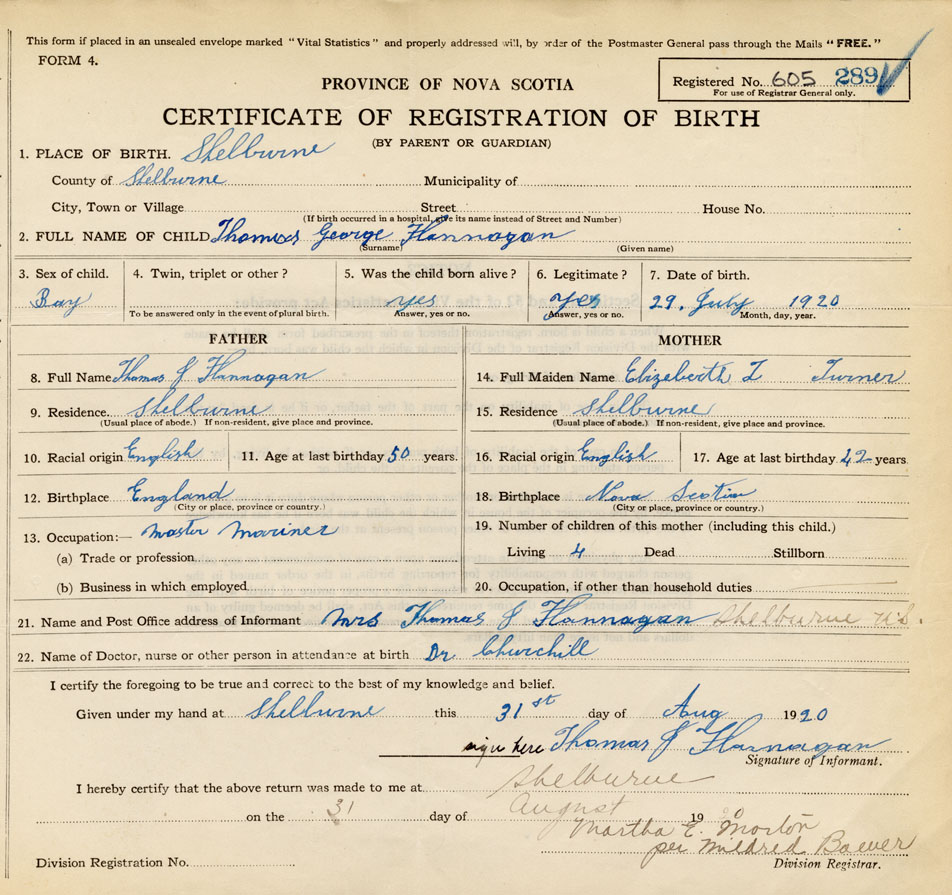 This form if placed in an unsealed envelope marked "Vital Statistics" and properly addressed will, by order of the Postmaster General pass through the Mails "FREE."
FORM 4.
Registered No. 605 289
For use of Registrar General only.
PROVINCE OF NOVA SCOTIA
CERTIFICATE OF REGISTRATION OF BIRTH
(BY PARENT OR GUARDIAN)
1. PLACE OF BIRTH. Shelburne
County of Shelburne Municipality of
City, Town or Village Street House No.
(If birth occurred in a hospital, give its name instead of Street and Number)
2. FULL NAME OF CHILD Thomas George Flannagan
(Surname) (Given name)
3. Sex of child. 4. Twin, triplet or other? 5. Was the child born alive? 6. Legitimate? 7. Date of birth.
Boy yes yes 29. July 1920
To be answered only in the event of plural birth. Answer, yes or no. Answer, yes or no. Month, day, year.
FATHER MOTHER
8. Full Name Thomas J Flannagan 14. Full Maiden Name Elizeberth Turner
9. Residence. Shelburne 15. Residence Shelburne
(Usual place of abode.) If non-resident, give place and province. (Usual place of abode.) If non-resident, give place and province.
10. Racial origin English 11. Age at last birthday 50 years. 16. Racial origin English 17. Age at last birthday 42 years
12. Birthplace England 18. Birthplace Nova Scotia
(City or place, province or country.) (City or place, province or country.)
13. Occupation:— Master Mariner 19. Number of children of this mother (including this child.)
(a) Trade or profession Living 4 Dead Stillborn
(b) Business in which employed 20. Occupation, if other than household duties
21. Name and Post Office address of Informant Mrs Thomas J Flannagan Shelburne N.S.
22. Name of Doctor, nurse or other person in attendance at birth Dr Churchill
I certify the foregoing to be true and correct to the best of my knowledge and belief.
Given under my hand at Shelburne this 31st day of Aug 1920
sign here Thomas J Flannagan
Signature of Informant.
I hereby certify that the above return was made to me at Shelburne
on the 31 day of August 19
Martha E. Morton
per Mildred Bower
Division Registration No. Division Registrar.